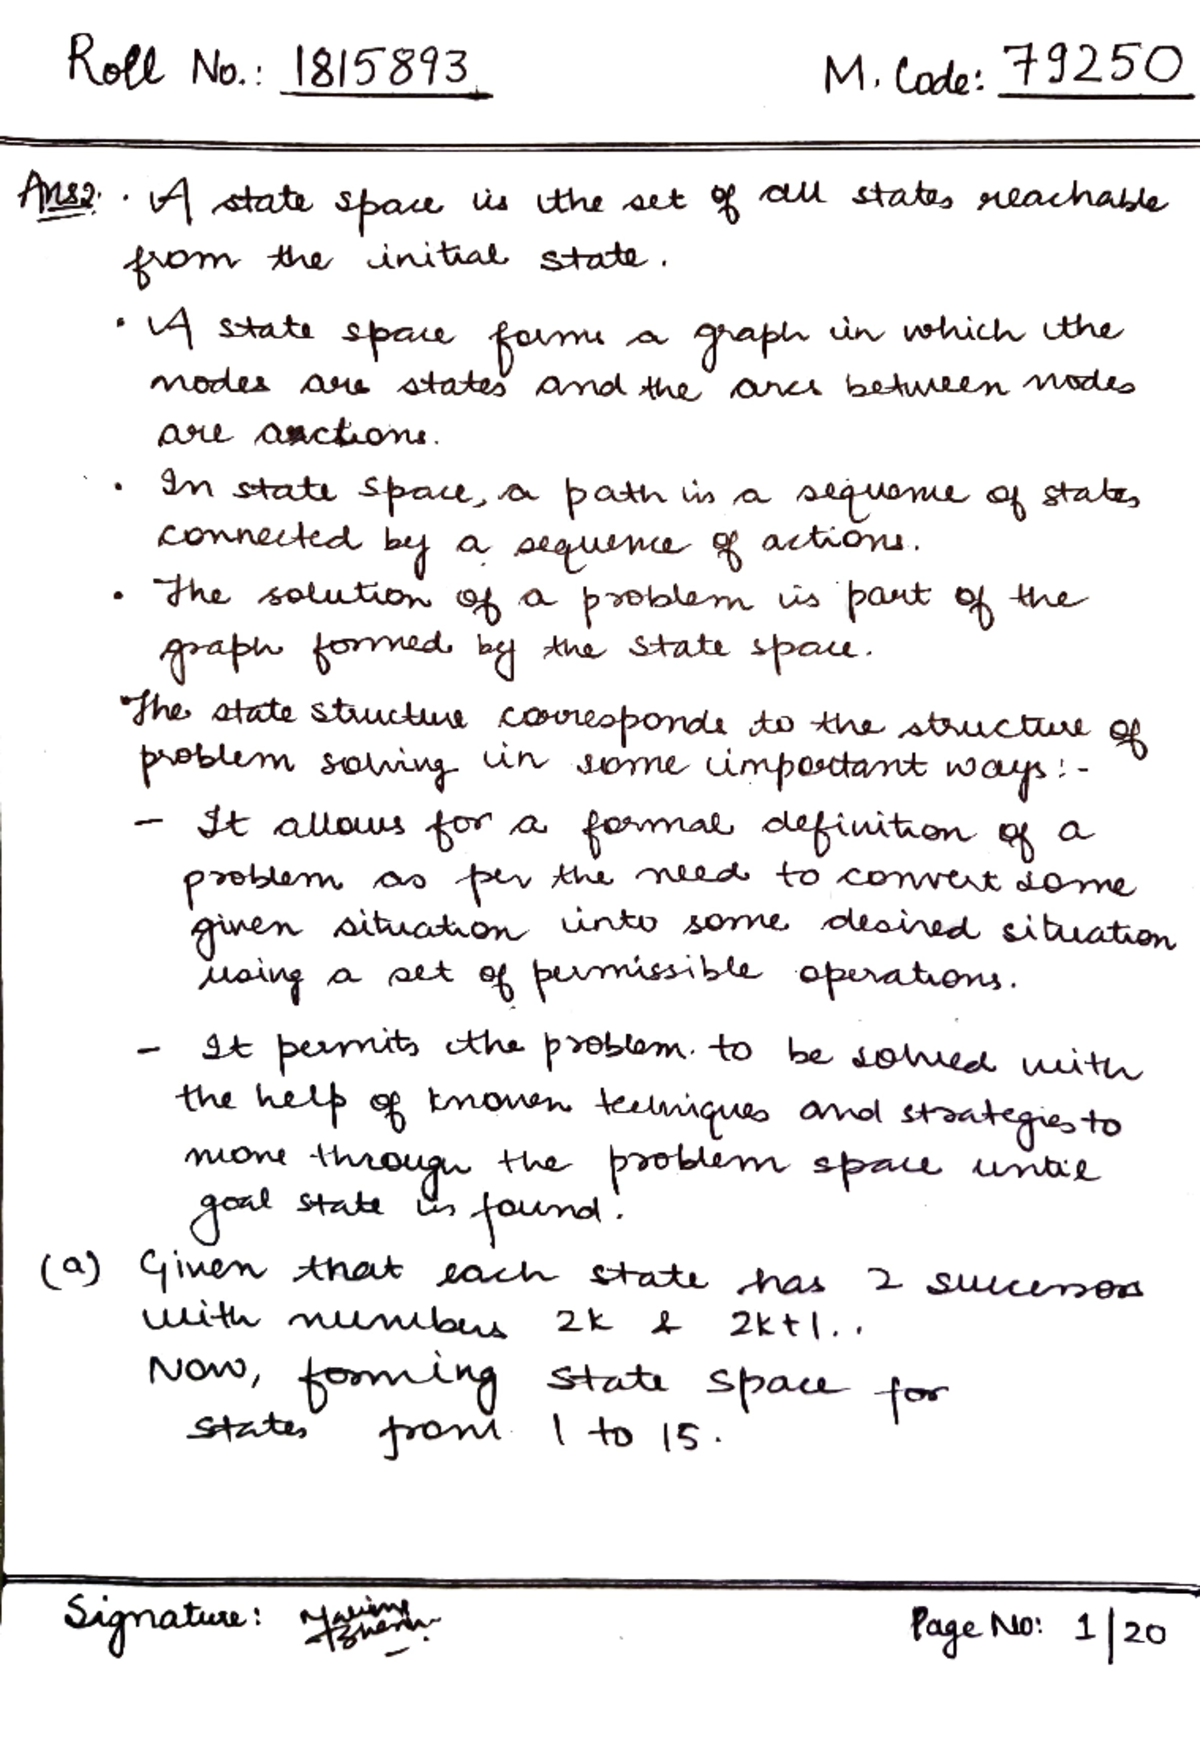 Roll No.: 1815893 M. Code: 79250
Ans2. · A state space is the set of all states reachable
from the initial state.
· A state space forms a graph in which the
nodes are states and the arcs between nodes
are actions.
· In state space, a path is a sequence of states
connected by a sequence of actions.
· The solution of a problem is part of the
graph formed by the state space.
· The state structure corresponds to the structure of
problem solving in some important ways:-
- It allows for a formal definition of a
problem as per the need to convert some
given situation into some desired situation
using a set of permissible operations.
- It permits the problem to be solved with
the help of known techniques and strategies to
move through the problem space until
goal state is found.
(a) Given that each state has 2 successors
with numbers 2k & 2k+1..
Now, forming state space for
states from 1 to 15.
Signature: Page No: 1/20